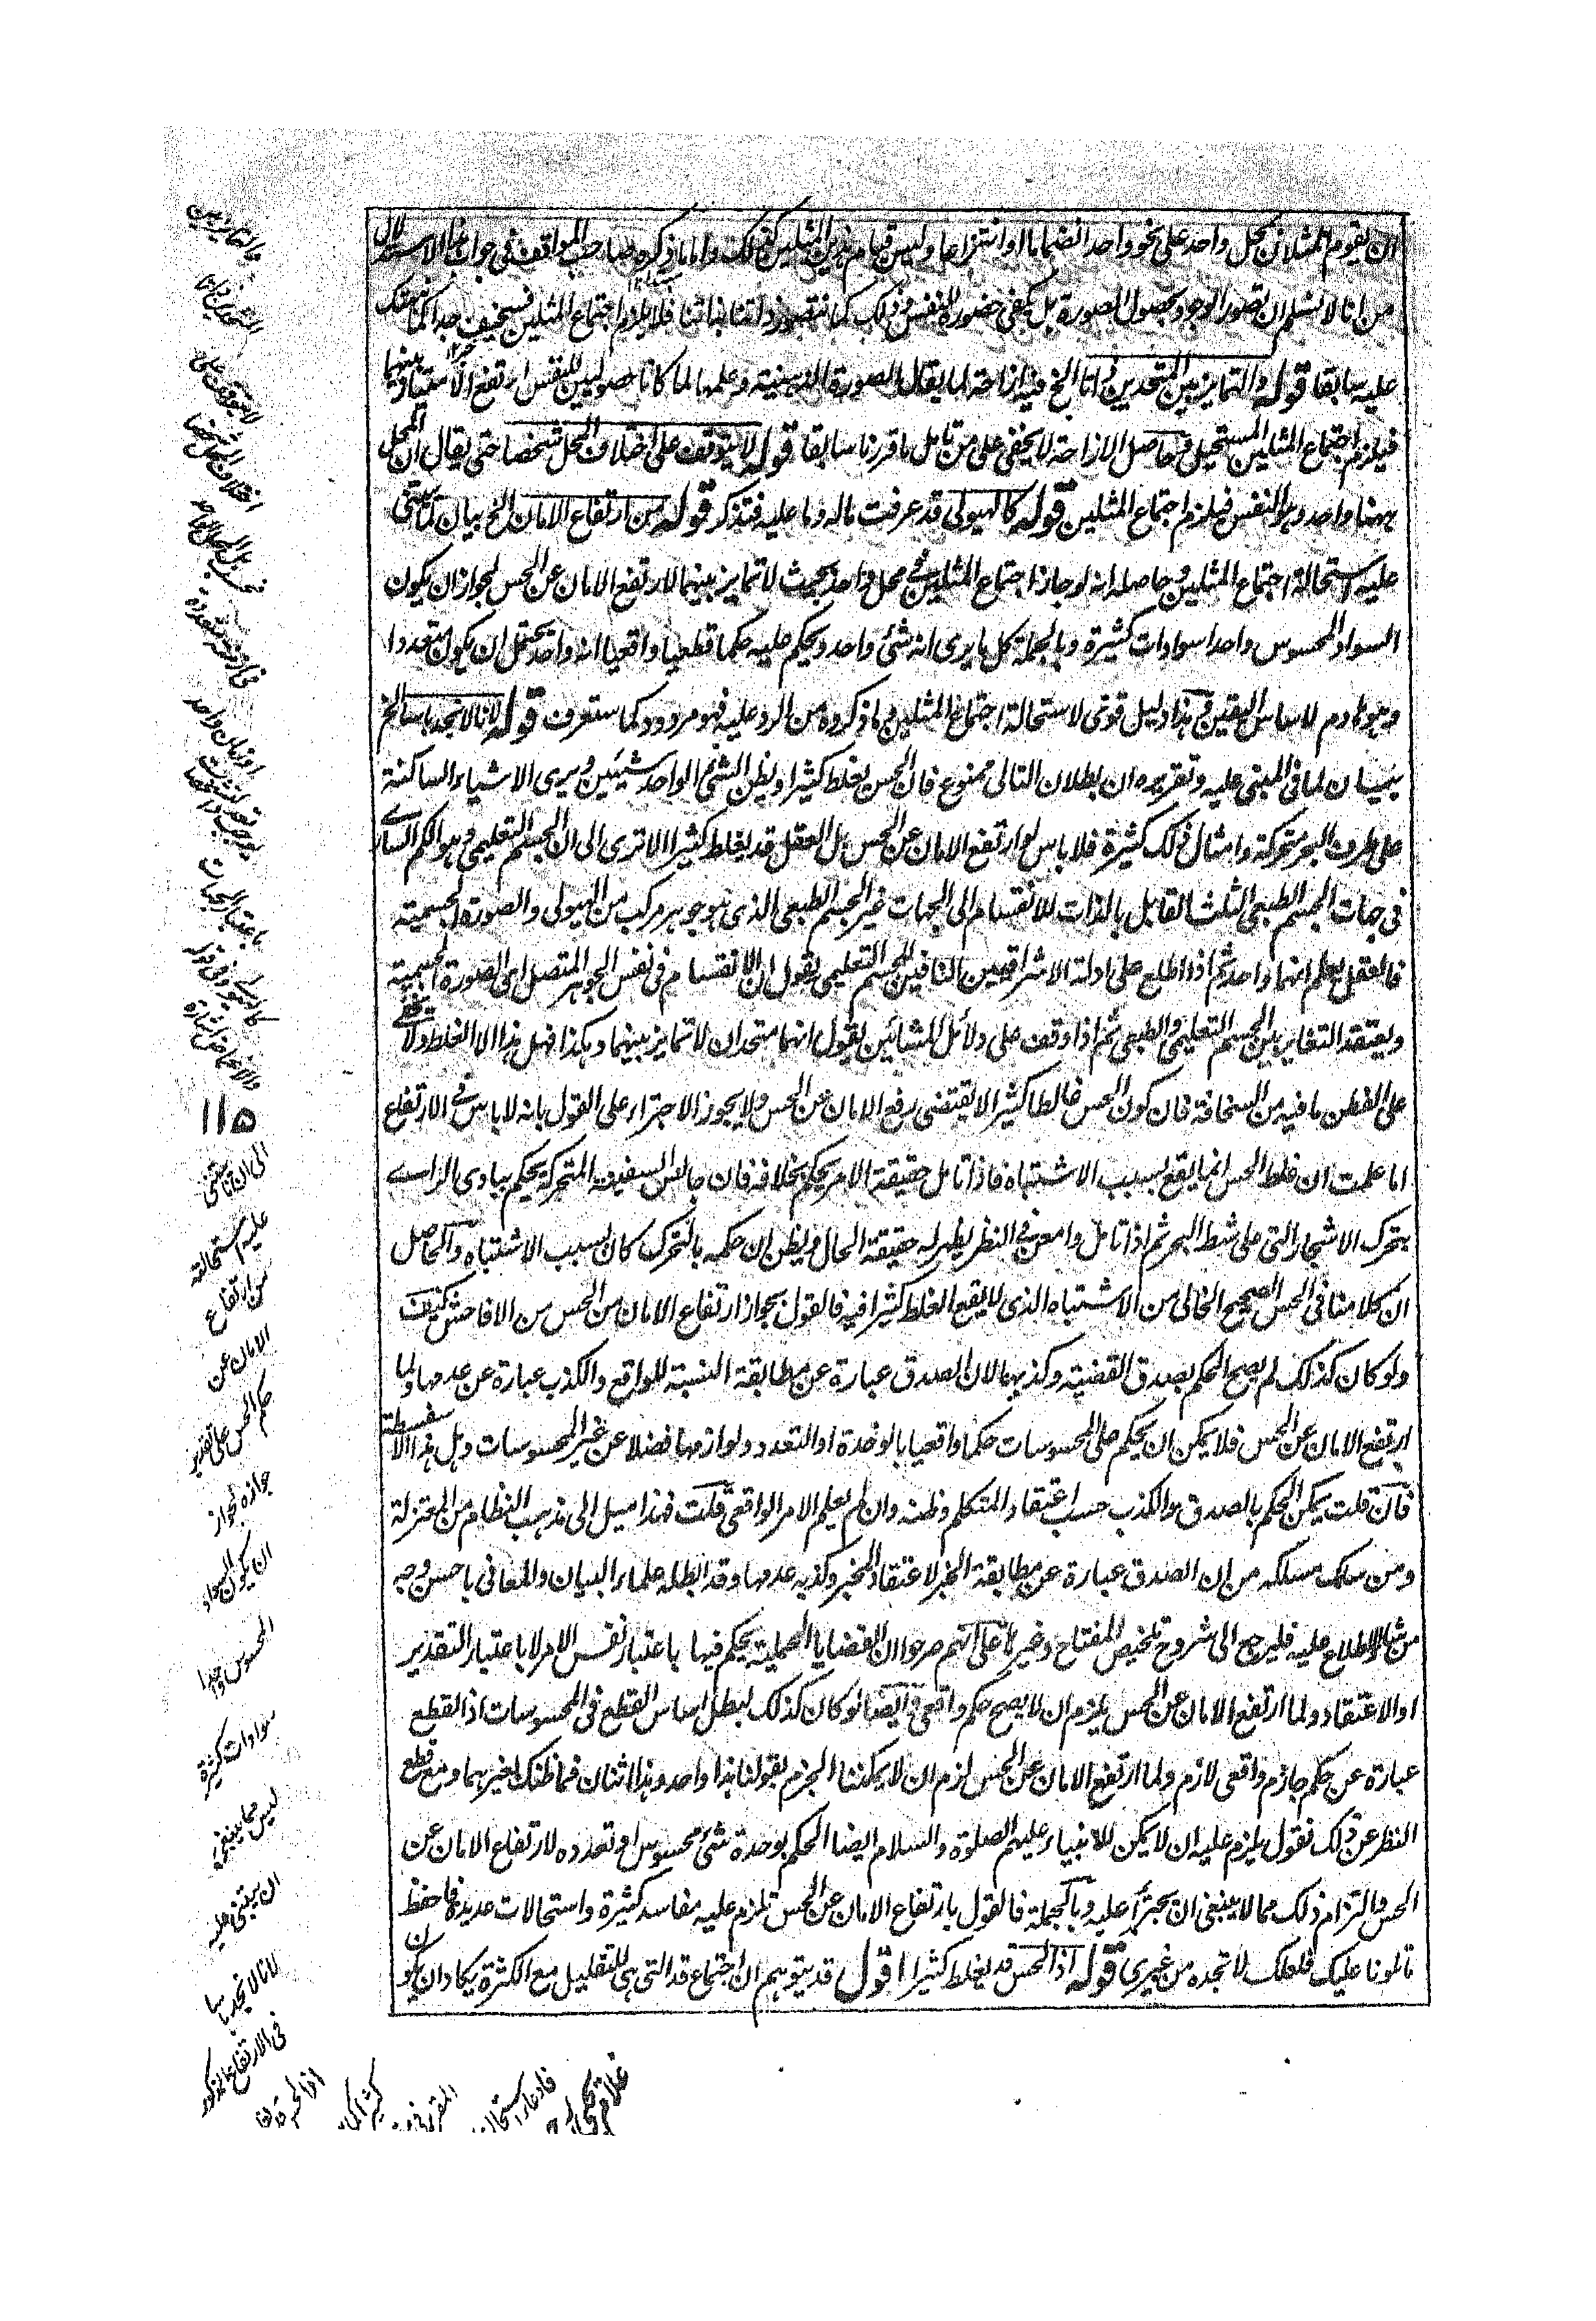 ان يقوم المثلان بمحل واحد على نحو واحد انضماما او انتزاعا وليس قيام هذين المثلين كذلك واما ما ذكره صاحب المواقف فى جواب هذا الاستدلال
من انا لا نسلم ان تصور الوجود بحصول الصورة بل يكفى حضوره للنفس وذلك كما نتصور ذاتنا بذاتنا فلا يلزم اجتماع المثلين فسخيف جدا كما نبهناك
عليه سابقا قوله والتمايز بين المتحدين ذاتا الخ فيه ازاحة لما يقال الصورة الذهنية وعلمها لما كانا حصوليين للنفس ارتفع الامتياز بينهما
فيلزم اجتماع المثلين المستحيل وحاصل الازاحة لا يخفى على من تامل ما قررنا سابقا قوله لا يتوقف على اختلاف المحل شخصا حتى يقال ان المحل
ههنا واحد وهو النفس فيلزم اجتماع المثلين قوله كالهيولى قد عرفت ماله وما عليه فتذكر قوله من ارتفاع الامان الخ بيان لما يبتنى
عليه استحالة اجتماع المثلين وحاصله انه لو جاز اجتماع المثلين فى محل واحد بحيث لا تمايز بينهما لارتفع الامان عن الحس لجواز ان يكون
السواد المحسوس واحدا سوادات كثيرة وبالجملة كل ما يرى انه شئ واحد ويحكم عليه حكما قطعيا واقعيا انه واحد يحتمل ان يكون متعددا
وهو هادم لاساس اليقين فهذا دليل قوى لاستحالة اجتماع المثلين وما ذكروه من الرد عليه فهو مردود كما ستعرف قوله لانا لا نجد باسا الخ
بيان لما فى المبنى عليه وتقريره ان بطلان التالى ممنوع فان الحس يغلط كثيرا ويظن الشئ الواحد شيئين ويرى الاشياء الساكنة
على طرف البحر متحركة وامثال ذلك كثيرة فلا باس لو ارتفع الامان عن الحس بل العقل قد يغلط كثيرا الا ترى الى ان الجسم التعليمى وهو الكم السارى
فى جهات الجسم الطبعى الثلث القابل بالذات للانقسام الى الجهات غير الجسم الطبعى الذى هو جوهر مركب من الهيولى والصورة الجسمية
فالعقل يعلم انهما واحد ثم اذا اطلع على ادلة الاشراقيين النافين للجسم التعليمى يقول ان الانقسام فى نفس الجوهر المتصل اى الصورة الجسمية
ويعتقد التغاير بين الجسم التعليمى والطبعى ثم اذا وقف على دلائل المشائين يقول انهما متحدان لا تمايز بينهما وهكذا فهل هذا الا الغلط ولا يخفى
على الفطن ما فيه من السخافة فان كون الحس غالطا كثيرا لا يقتضى رفع الامان عن الحس ولا يجوز الاجتراء على القول بانه لا باس فى الارتفاع
اما علمت ان غلط الحس انما يقع بسبب الاشتباه فاذا تامل حقيقة الامر يحكم بخلافه فان جالس السفينة المتحركة يحكم ببادى الراى
بتحرك الاشجار التى على شط البحر ثم اذا تامل وامعن فى النظر يظهر له حقيقة الحال ويظن ان حكمه بالتحرك كان بسبب الاشتباه والحاصل
ان كلامنا فى الحس الصحيح الخالى من الاشتباه الذى لا يقع الغلط كثيرا فيه فالقول بجواز ارتفاع الامان من الحس من الافاحش كيف
ولو كان كذلك لم يصح الحكم بصدق القضية وكذبها لان الصدق عبارة عن مطابقة النسبة للواقع والكذب عبارة عن عدمها ولما
ارتفع الامان عن الحس فلا يمكن ان يحكم على المحسوسات حكما واقعيا بالوحدة او التعدد ولوازمها فضلا عن غير المحسوسات وهل هذا الا سفسطة
فان قلت يمكن الحكم بالصدق والكذب حسب اعتقاد المتكلم وظنه وان لم يعلم الامر الواقعى قلت فهذا ميل الى مذهب النظام من المعتزلة
ومن سلك مسلكه من ان الصدق عبارة عن مطابقة الخبر لاعتقاد المخبر وكذبه عدمها وقد ابطله علماء البيان والمعانى باحسن وجه
من شاء الاطلاع عليه فليرجع الى شروح تلخيص المفتاح وغيرها على انهم صرحوا ان القضايا الحملية يحكم فيها باعتبار نفس الامر لا باعتبار التقدير
او الاعتقاد ولما ارتفع الامان عن الحس يلزم ان لا يصح حكم واقعى وايضا لو كان كذلك لبطل اساس القطع فى المحسوسات اذ القطع
عبارة عن حكم جازم واقعى لازم ولما ارتفع الامان عن الحس لزم ان لا يمكننا الجزم بقولنا هذا واحد وهذا اثنان فما ظنك بغيرهما ومع قطع
النظر عن ذلك فنقول يلزم عليه ان لا يمكن للانبياء عليهم الصلوة والسلام ايضا الحكم بوحدة شئ محسوس او تعدده لارتفاع الامان عن
الحس والتزام ذلك مما لا ينبغى ان يجترأ عليه وبالجملة فالقول بارتفاع الامان عن الحس تلزم عليه مفاسد كثيرة واستحالات عديدة فاحفظ
ما تلونا عليك فلعلك لا تجده من غيرى قوله اذ الحس قد يغلط كثيرا اقول قد يتوهم ان اجتماع قد التى هى للتقليل مع الكثرة يكاد ان يكون
والتمايز بين
المتحدين ذاتا
لا يتوقف على
اختلاف المحل شخصا
١١٥
الى ان ما يبتنى
عليه استحالته
من ارتفاع
الامان عن
حكم الحس على تقدير
جوازه لجواز
ان يكون السواد
المحسوس واحدا
سوادات كثيرة
ليس مما ينبغى
ان يبتنى عليه
لانا لا نجد باسا
فى الارتفاع المذكور
اذ الحس قد يغلط
كثيرا